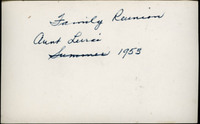 Family Reunion
Aunt
Summer 1953